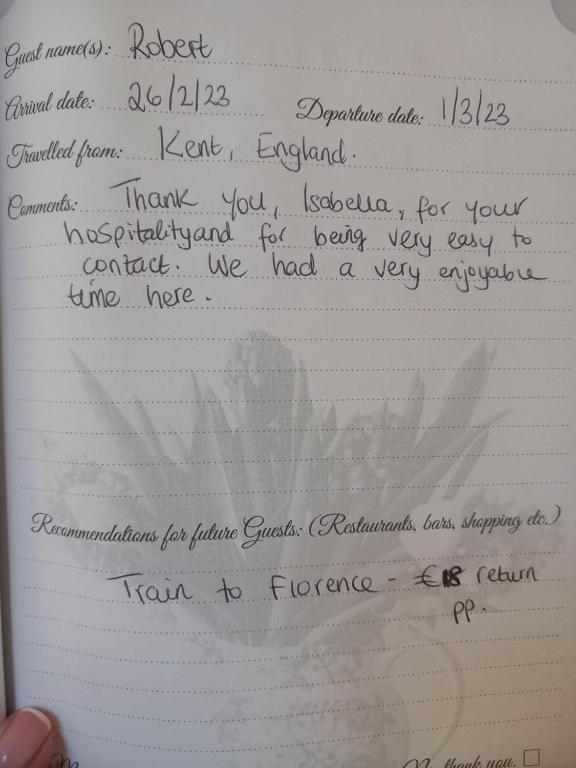 Guest name(s): Robert
Arrival date: 26/2/23 Departure date: 1/3/23
Travelled from: Kent, England.
Comments: Thank you, Isabella, for your
hospitality and for being very easy to
contact. We had a very enjoyable
time here.
Recommendations for future Guests: (Restaurants, bars, shopping etc.)
Train to Florence - €18 return
pp.
thank you.